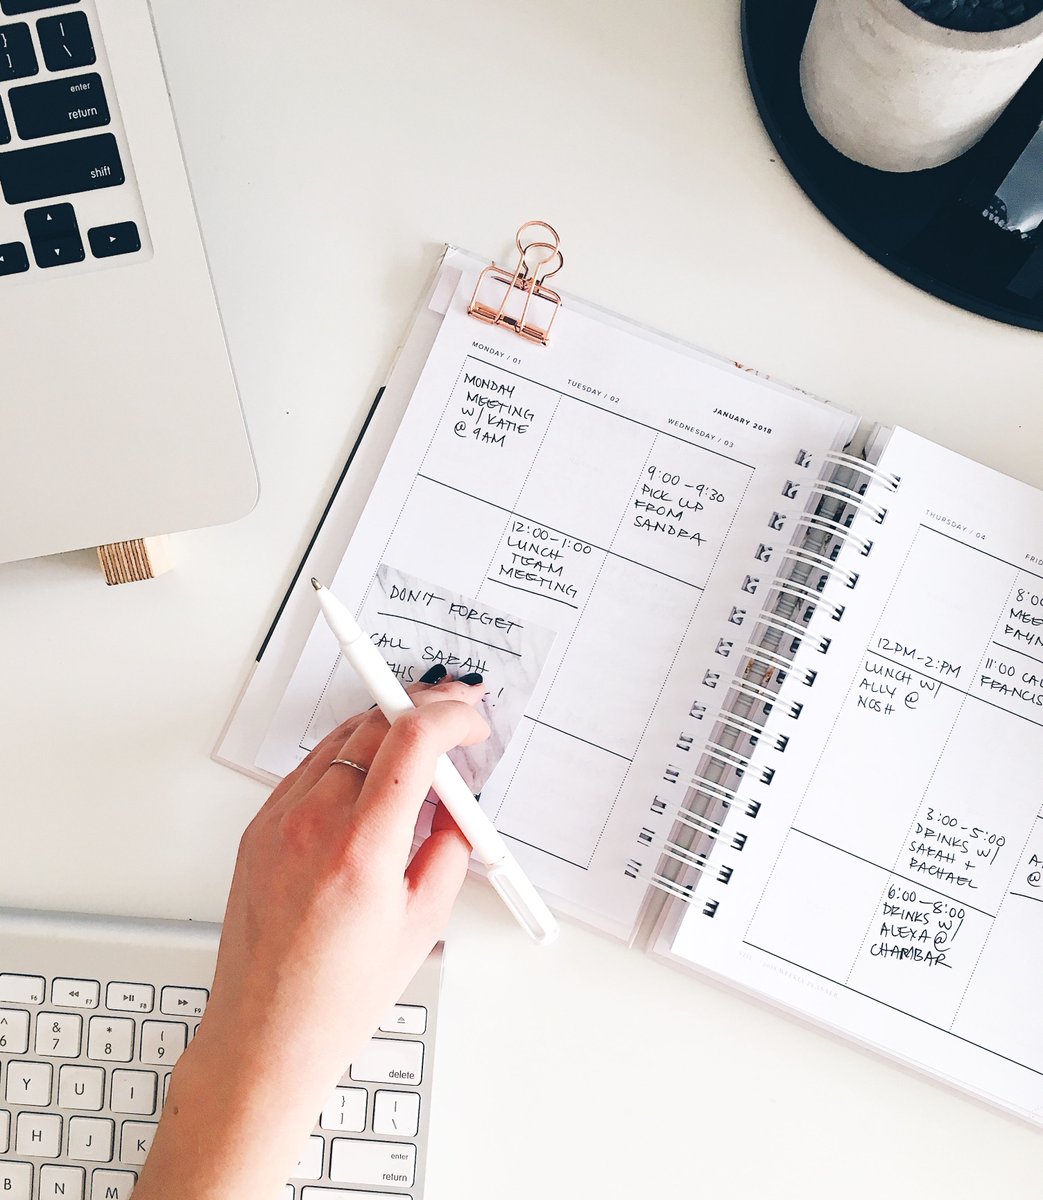 }
]
|
\
enter
return
shift
MONDAY / 01
MONDAY
MEETING
W/ KATIE
@ 9AM
TUESDAY / 02
12:00-1:00
LUNCH
TEAM
MEETING
JANUARY 2018
WEDNESDAY / 03
9:00-9:30
PICK UP
FROM
SANDRA
DON'T FORGET
CALL SARAH
THIS
!
THURSDAY / 04
12PM-2:PM
LUNCH W/
ALLY @
NOSH
8:00
11:00
3:00-5:00
DRINKS W/
SARAH +
RACHAEL
6:00-8:00
DRINKS W/
ALEXA @
CHAMBAR
A
@
2018 WEEKLY PLANNER
F6
F7
F8
F9
6
& 7
* 8
( 9
delete
Y
U
I
}
]
|
\
H
J
K
enter
return
B
N
M